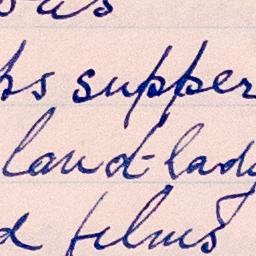 supper
land-lady
films